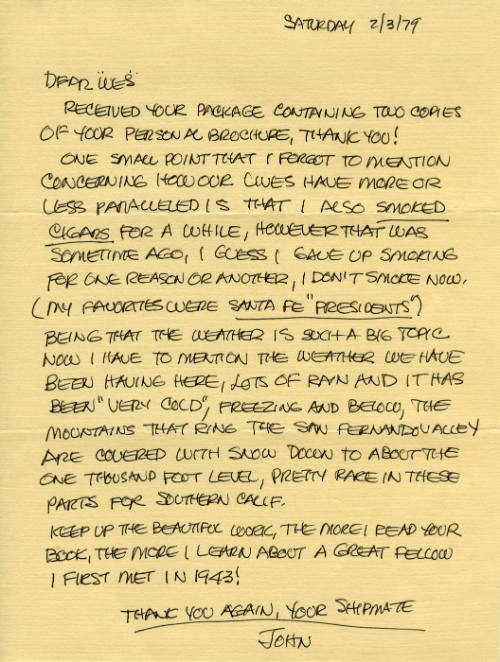 SATURDAY 2/3/79
DEAR "WES"
RECEIVED YOUR PACKAGE CONTAINING TWO COPIES
OF YOUR PERSONAL BROCHURE, THANK YOU!
ONE SMALL POINT THAT I FORGOT TO MENTION
CONCERNING HOW OUR LIVES HAVE MORE OR
LESS PARALLELED IS THAT I ALSO SMOKED
CIGARS FOR A WHILE, HOWEVER THAT WAS
SOMETIME AGO, I GUESS I GAVE UP SMOKING
FOR ONE REASON OR ANOTHER, I DON'T SMOKE NOW.
(MY FAVORITES WERE SANTA FE "PRESIDENTS")
BEING THAT THE WEATHER IS SUCH A BIG TOPIC
NOW I HAVE TO MENTION THE WEATHER WE HAVE
BEEN HAVING HERE, LOTS OF RAIN AND IT HAS
BEEN "VERY COLD", FREEZING AND BELOW, THE
MOUNTAINS THAT RING THE SAN FERNANDO VALLEY
ARE COVERED WITH SNOW DOWN TO ABOUT THE
ONE THOUSAND FOOT LEVEL, PRETTY RARE IN THESE
PARTS FOR SOUTHERN CALIF.
KEEP UP THE BEAUTIFUL WORK, THE MORE I READ YOUR
BOOK, THE MORE I LEARN ABOUT A GREAT FELLOW
I FIRST MET IN 1943!
THANK YOU AGAIN, YOUR SHIPMATE
JOHN